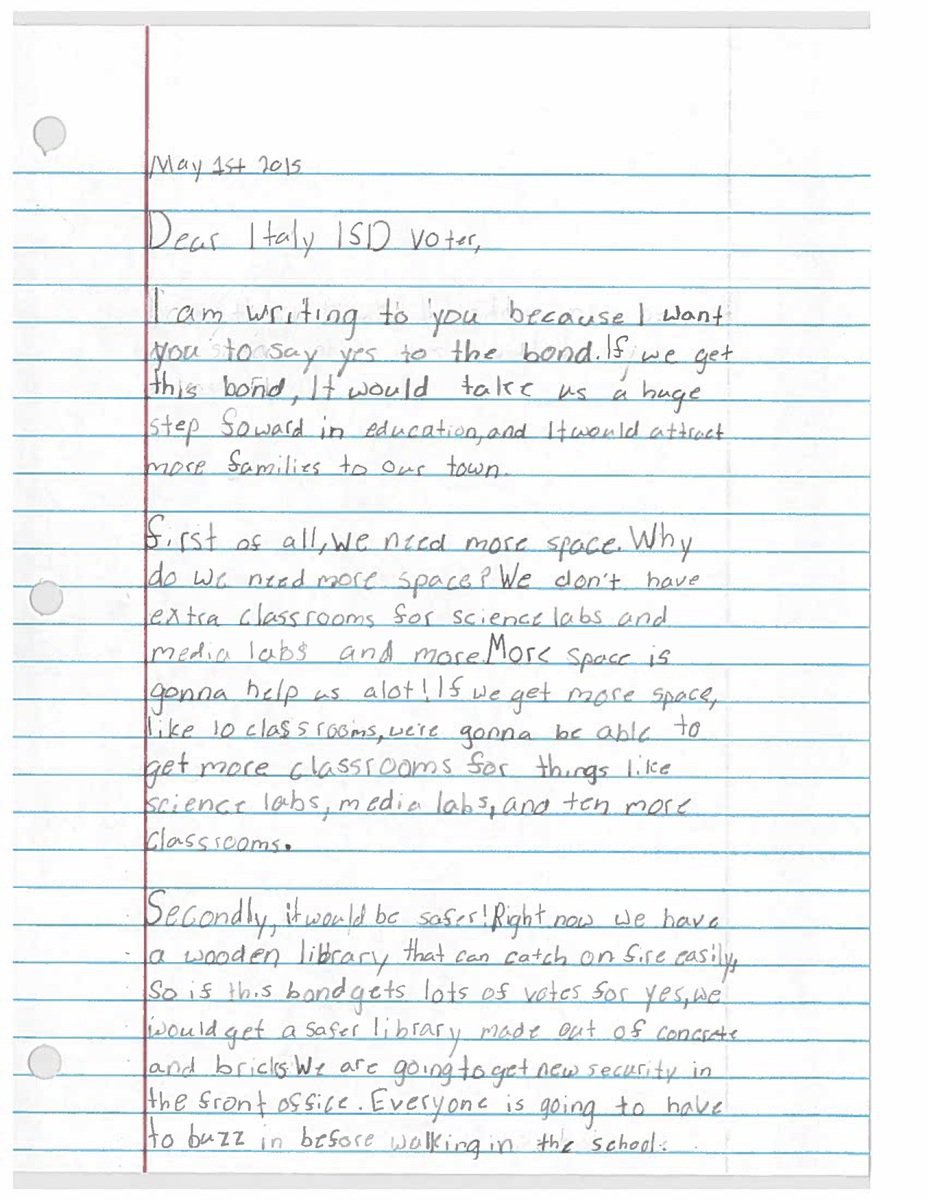 May 1st 2015
Dear Italy ISD voter,
I am writing to you because I want
you to say yes to the bond. If we get
this bond, It would take us a huge
step foward in education, and It would attract
more families to our town.
first of all, we need more space. Why
do we need more space? We don't have
extra classrooms for science labs and
media labs and more. More space is
gonna help us alot! If we get more space,
like 10 classrooms, we're gonna be able to
get more classrooms for things like
science labs, media labs, and ten more
classrooms.
Secondly, it would be safer! Right now we have
a wooden library that can catch on fire easily,
so if this bond gets lots of votes for yes, we
would get a safer library made out of concrete
and bricks. We are going to get new security in
the front office. Everyone is going to have
to buzz in before walking in the school.